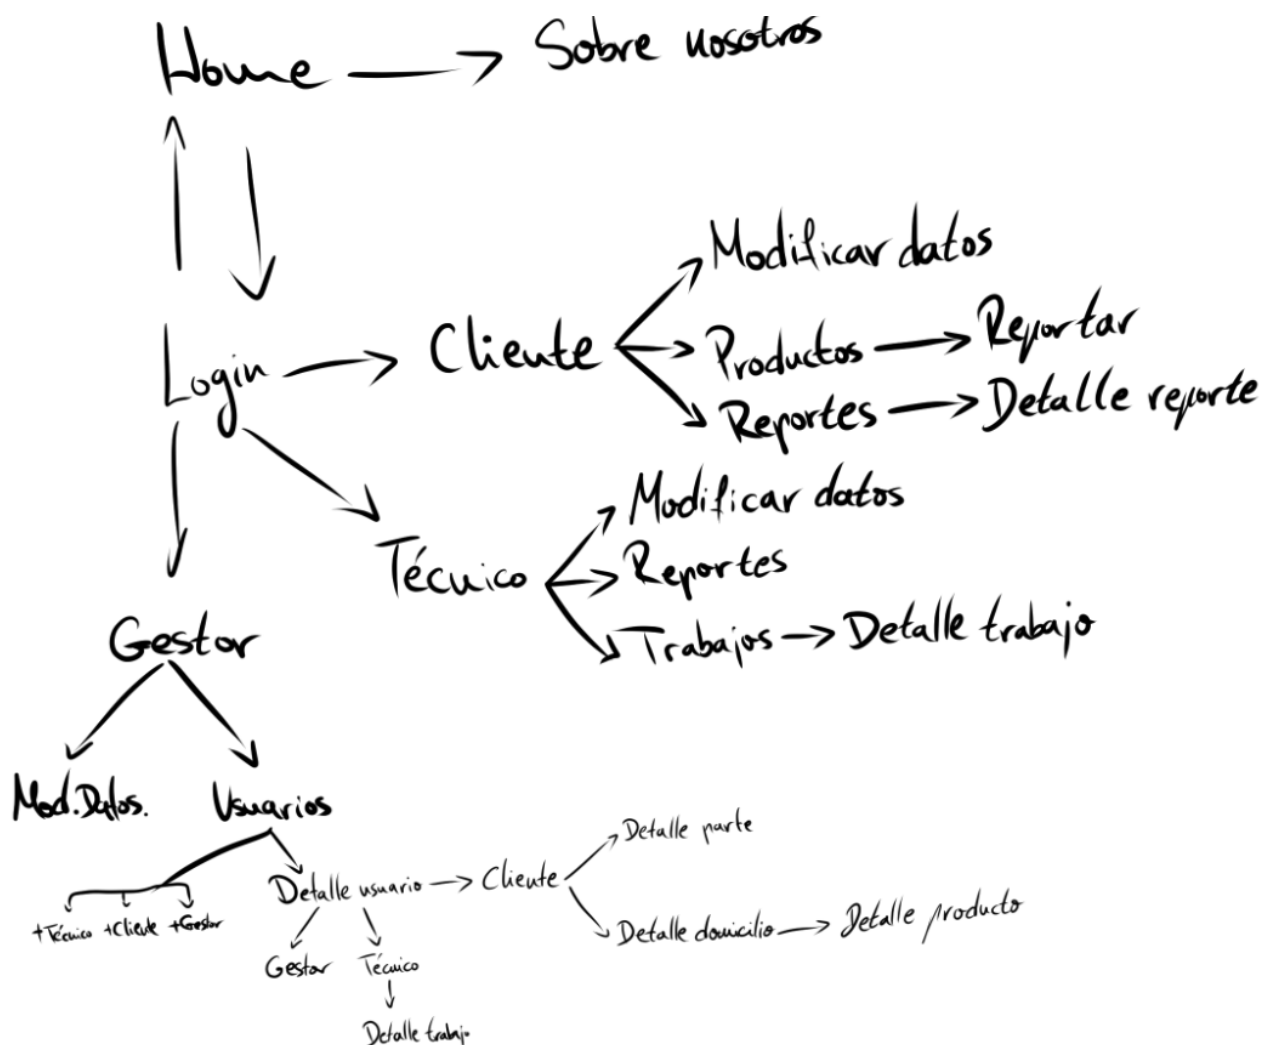 Home
Sobre nosotros
Login
Cliente
Modificar datos
Productos
Reportar
Reportes
Detalle reporte
Técnico
Modificar datos
Reportes
Trabajos
Detalle trabajo
Gestor
Mod.Datos.
Usuarios
+Técnico +Cliente +Gestor
Detalle usuario
Cliente
Detalle parte
Detalle domicilio
Detalle producto
Gestor
Técnico
Detalle trabajo